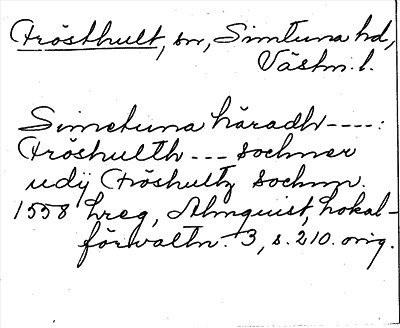 Frösthult, sn, Simtuna hd,
Västm. l.
Simetuna häradh ----:
Fröshulth --- sochner
udij Fröshultz sochnn.
1558 hreg, Almquist, Lokal-
förvaltn. 3, s. 210. orig.